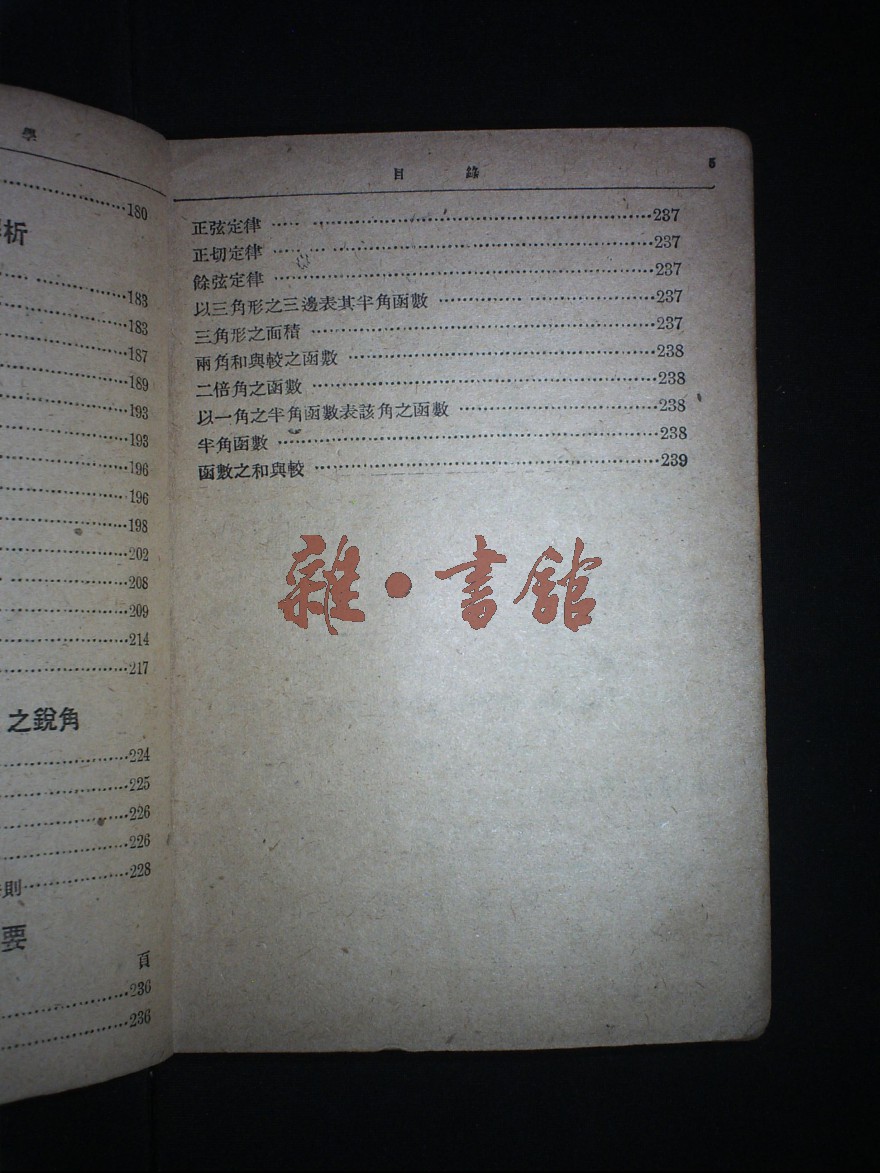 學
180
析
183
183
187
189
193
193
196
196
198
202
208
209
214
217
之銳角
224
225
226
226
則 228
要
頁
236
236
目 錄 5
正弦定律 237
正切定律 237
餘弦定律 237
以三角形之三邊表其半角函數 237
三角形之面積 237
兩角和與較之函數 238
二倍角之函數 238
以一角之半角函數表該角之函數 238
半角函數 238
函數之和與較 239
雜·書館